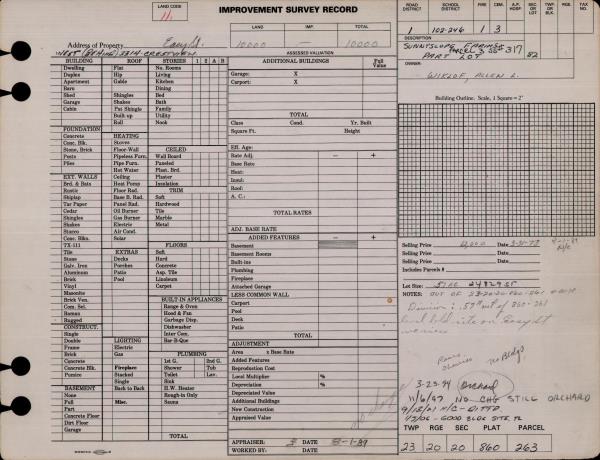 LAND CODE
11
IMPROVEMENT SURVEY RECORD
LAND IMP. TOTAL
10000 — 10000
ASSESSED VALUATION
ROAD DISTRICT SCHOOL DISTRICT FIRE CEM. A.P. HOSP SEC OR LOT TWP OR BLK RGE TAX NO.
1 102-246 1 3
Address of Property Easy St.
WEST (BEHIND) 3314 CRESTVIEW
DESCRIPTION
SUNNYSLOPE FARMS
PART LOT 52
OWNER
WIKLOF, ALLEN L.
BUILDING ROOF STORIES 1 2 A B
Dwelling Flat No. Rooms
Duplex Hip Living
Apartment Gable Kitchen
Barn Dining
Shed Shingles Bed
Garage Shakes Bath
Cabin Pat Shingle Family
Built up Utility
Roll Nook
FOUNDATION
Concrete HEATING CEILED
Conc. Blk. Stoves
Stone, Brick Floor-Wall Wall Board
Posts Pipeless Furn. Ceiling
Piles Pipe Furn. Paneled
Hot Water Plast. Brd.
EXT. WALLS Ceiling Plaster
Brd. & Bats Heat Pump Insulation
Rustic Floor Rad. TRIM
Shiplap Base B. Rad. Soft
Tar Paper Panel Rad. Hardwood
Cedar Oil Burner Tile
Shingles Gas Burner Marble
Shakes Electric Metal
Stucco Air Cond.
Conc. Blks. Solar
TX-111 FLOORS
Tile EXTRAS Soft
Stone Decks Hard
Galv. Iron Porches Concrete
Aluminum Patio Asp. Tile
Brick Pool Linoleum
Vinyl Carpet
Masonite
Brick Ven. BUILT-IN APPLIANCES
Com. Sel. Range & Oven
Roman Hood & Fan
Rugged Garbage Disp.
Dishwasher
CONSTRUCT. Inter Com.
Single LIGHTING Bar-B-Que
Double Electric
Frame Gas PLUMBING
Brick 1st G. 2nd G.
Concrete Fireplace Shower Tub
Concrete Blk. Stacked Toilet Lav.
Pumice Single Sink
BASEMENT Back to Back H.W. Heater
None Rough-in Only
Full Misc. Sauna
Part
Concrete Floor
Dirt Floor
Garage TOTAL
ADDITIONAL BUILDINGS Full Value
Garage: X
Carport: X
TOTAL
Class Cond. Yr. Built
Square Ft. Height
Eff. Age:
Rate Adj. — +
Base Rate
Heat:
Insul:
Roof:
A. C.:
TOTAL RATES
ADJ. BASE RATE
ADDED FEATURES — +
Basement
Basement Rooms
Built-ins
Plumbing
Fireplace
Attached Garage
LESS COMMON WALL
Carport
Pool
Deck
Patio
TOTAL
ADJUSTMENT
Area x Base Rate
Added Features
Reproduction Cost
Local Multiplier %
Depreciation %
Depreciated Value
Additional Buildings
New Construction
Appraised Value
APPRAISER: DATE 8-1-89
WORKED BY: DATE
Building Outline. Scale, 1 Square = 2'
Selling Price 12,000 Date 3-31-77
Selling Price Date
Includes Parcels #
Lot Size: .57 AC 24829 SF
NOTES: OUT OF 23-20-20-860-261
Division: .57 AC out of 860-261
3-23-94 Orchard
11/6/97 NO CHG STILL ORCHARD
9/15/01 N/C - DITTO
4/3/06 - GOOD BLDG SITE
TWP RGE SEC PLAT PARCEL
23 20 20 860 263